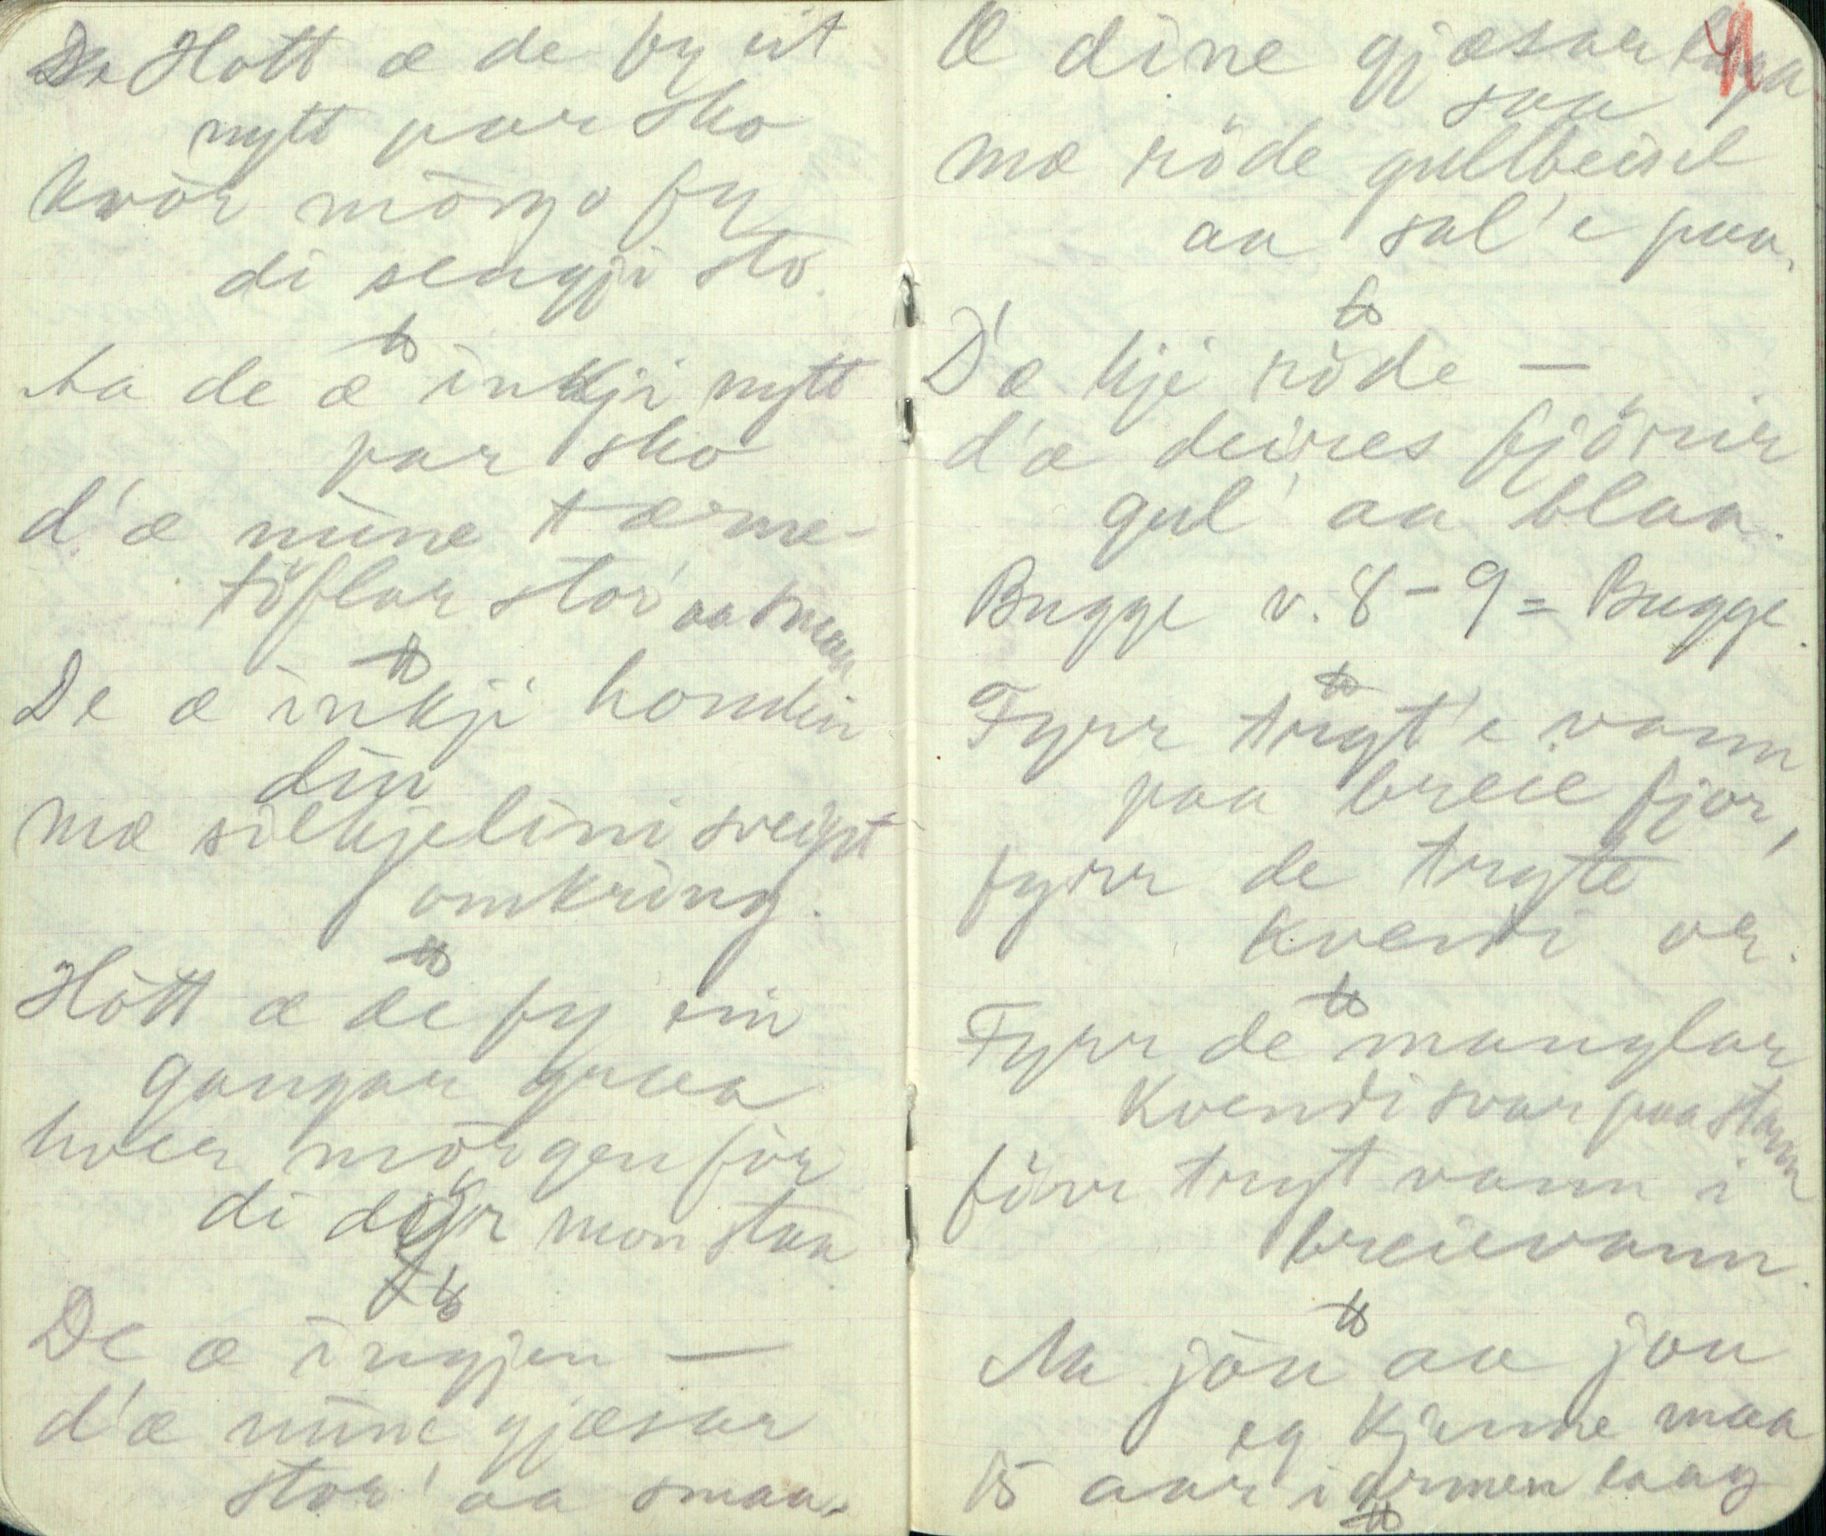 Hott æ de fy eit
nytt par sko
kvòr mòrgo fy
di sengji sto.
Aa de æ inkji nytt
par sko
d'æ mine tærne-
töflar stor' aa smaa
De æ inkji hondin
din
mæ silkjelini sveipt
omkring.
Hòtt æ de fy ein
gangar graa
hver mòrgen før
di dør mon staa
De æ ingjen —
d'æ mine gjæsar
stor' aa smaa.
Æ dine gjæsar
saa
mæ röde gullbeisel
aa sal'e paa.
D'æ kji röde —
d'æ deires fjörir
gul' aa blaa.
Bugge v. 8-9 = Bugge.
Fyrr tryt'e vann
paa breie fjor,
fyrr de tryte
kvendi or.
Fyrr de manglar
kvendi svar paa stann
förr tryt vann i
breievann.
Aa jòu aa jou
eg kjenne maa
15 aar i armen laag